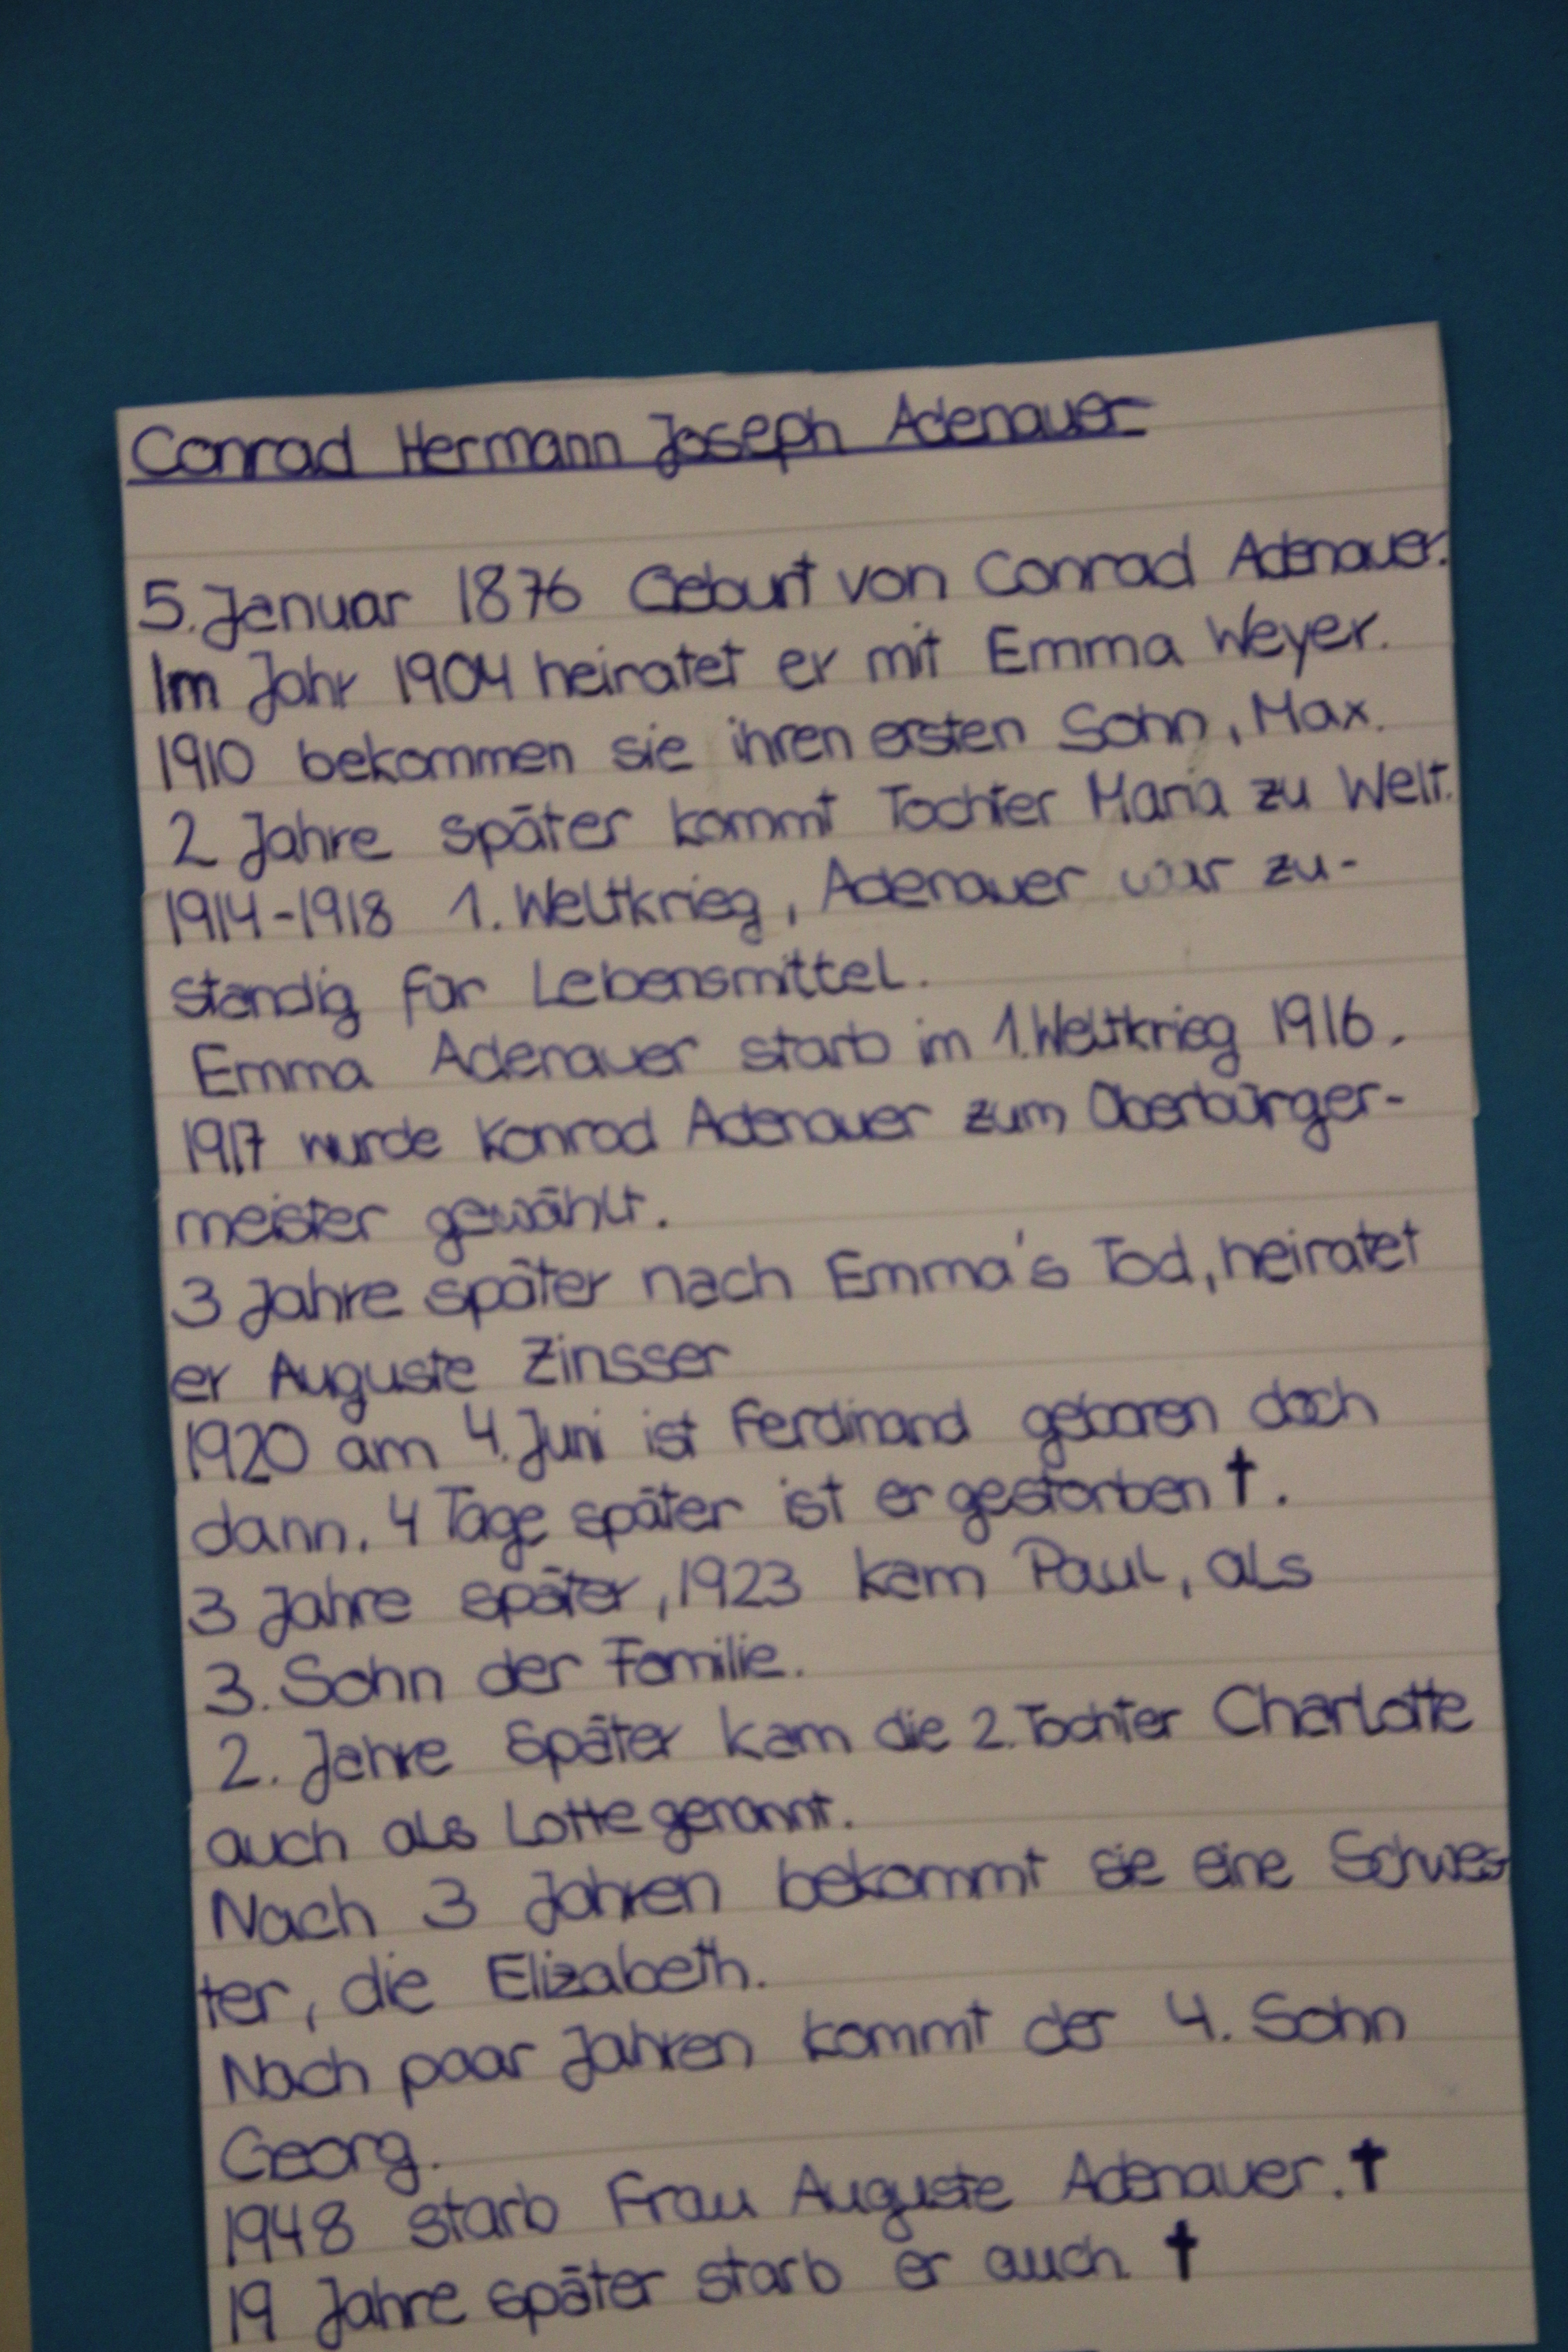 Conrad Hermann Joseph Adenauer
5. Januar 1876 Geburt von Conrad Adenauer.
Im Jahr 1904 heiratet er mit Emma Weyer.
1910 bekommen sie ihren ersten Sohn, Max.
2 Jahre später kommt Tochter Maria zu Welt.
1914-1918 1. Weltkrieg, Adenauer war zu-
ständig für Lebensmittel.
Emma Adenauer starb im 1. Weltkrieg 1916.
1917 wurde Konrad Adenauer zum Oberbürger-
meister gewählt.
3 Jahre später nach Emma's Tod, heiratet
er Auguste Zinsser
1920 am 4. Juni ist Ferdinand geboren doch
dann. 4 Tage später ist er gestorben †.
3 Jahre später, 1923 kam Paul, als
3. Sohn der Familie.
2. Jahre Später kam die 2. Tochter Charlotte
auch als Lotte genannt.
Nach 3 Jahren bekommt sie eine Schwes
ter, die Elizabeth.
Nach paar Jahren kommt der 4. Sohn
Georg.
1948 starb Frau Auguste Adenauer. †
19 Jahre später starb er auch. †